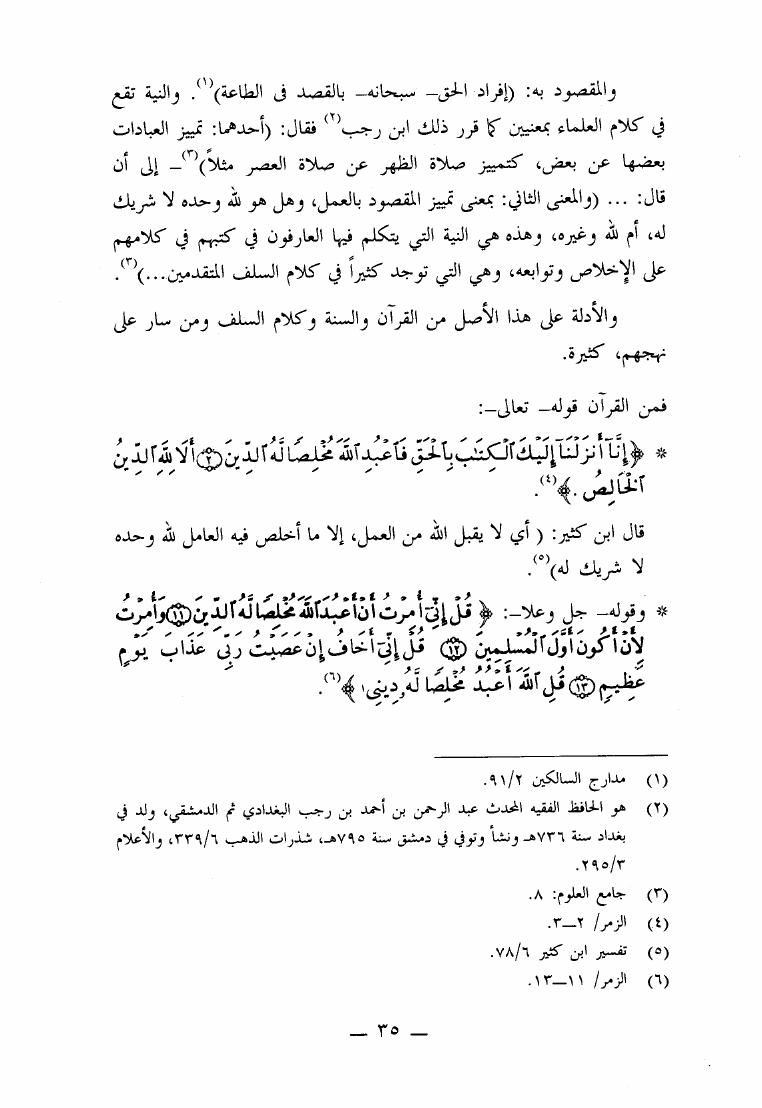 والمقصود به: (إفراد الحق– سبحانه– بالقصد في الطاعة)(١). والنية تقع
في كلام العلماء بمعنيين كما قرر ذلك ابن رجب(٢) فقال: (أحدهما: تمييز العبادات
بعضها عن بعض، كتمييز صلاة الظهر عن صلاة العصر مثلاً)(٣)– إلى أن
قال: ... (والمعنى الثاني: بمعنى تمييز المقصود بالعمل، وهل هو لله وحده لا شريك
له، أم لله وغيره، وهذه هي النية التي يتكلم فيها العارفون في كتبهم في كلامهم
على الإخلاص وتوابعه، وهي التي توجد كثيراً في كلام السلف المتقدمين...)(٣).
والأدلة على هذا الأصل من القرآن والسنة وكلام السلف ومن سار على
نهجهم، كثيرة.
فمن القرآن قوله– تعالى–:
* ﴿إِنَّآ أَنزَلْنَآ إِلَيْكَ ٱلْكِتَٰبَ بِٱلْحَقِّ فَٱعْبُدِ ٱللَّهَ مُخْلِصًا لَّهُ ٱلدِّينَ ۝٢ أَلَا لِلَّهِ ٱلدِّينُ
ٱلْخَالِصُ.﴾(٤).
قال ابن كثير: ( أي لا يقبل الله من العمل، إلا ما أخلص فيه العامل لله وحده
لا شريك له)(٥).
* وقوله– جل وعلا–: ﴿ قُلْ إِنِّىٓ أُمِرْتُ أَنْ أَعْبُدَ ٱللَّهَ مُخْلِصًا لَّهُ ٱلدِّينَ ۝١١ وَأُمِرْتُ
لِأَنْ أَكُونَ أَوَّلَ ٱلْمُسْلِمِينَ ۝١٢ قُلْ إِنِّىٓ أَخَافُ إِنْ عَصَيْتُ رَبِّى عَذَابَ يَوْمٍ
عَظِيمٍ ۝١٣ قُلِ ٱللَّهَ أَعْبُدُ مُخْلِصًا لَّهُۥ دِينِى﴾(٦).
(١) مدارج السالكين ٩١/٢.
(٢) هو الحافظ الفقيه المحدث عبد الرحمن بن أحمد بن رجب البغدادي ثم الدمشقي، ولد في
بغداد سنة ٧٣٦هـ ونشأ وتوفي في دمشق سنة ٧٩٥هـ، شذرات الذهب ٣٣٩/٦، والأعلام
٢٩٥/٣.
(٣) جامع العلوم: ٨.
(٤) الزمر/ ٢–٣.
(٥) تفسير ابن كثير ٧٨/٦.
(٦) الزمر/ ١١–١٣.
– ٣٥ –